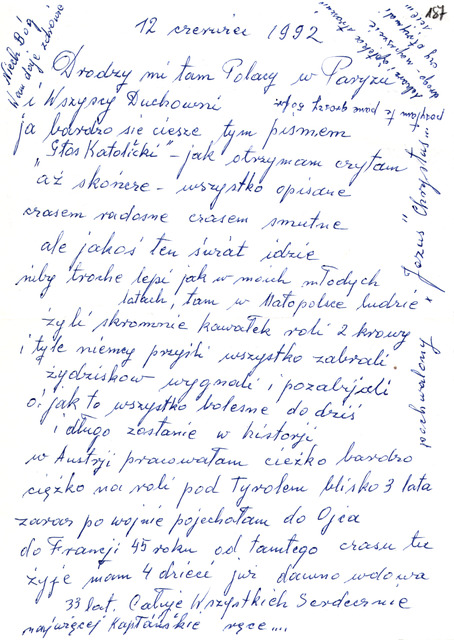 187
Niech Bóg
Wam daje zdrowie
12 czerwiec 1992
Drodzy mi tam Polacy w Paryzu
i Wszyscy Duchowni
ja bardzo sie ciesze tym pismem
"Głos Katolicki" - jak otrzymam czytam
aż skończe - wszystko opisane
czasem radosne czasem smutne
ale jakoś ten świat idzie
niby troche lepi jak w moich młodych
latach, tam w Małopolsce ludzie
żyli skromnie kawałek roli 2 krowy
i tyle niemcy przyśli wszystko zabrali
żydziskow wygnali i pozabijali
o! jak to wszystko bolesne do dziś
i długo zostanie w historji
w Austrji pracowałam cieżko bardzo
ciężko na roli pod Tyrolem blisko 3 lata
zaraz po wojnie pojechałam do Ojca
do Francji 45 roku od tamtego czasu tu
żyje mam 4 dzieci już dawno wdowa
33 lat. Całuje Wszystkich Serdecznie
najwięcej Kapłańskie ręce....
pochwalony Jezus Chrystus...